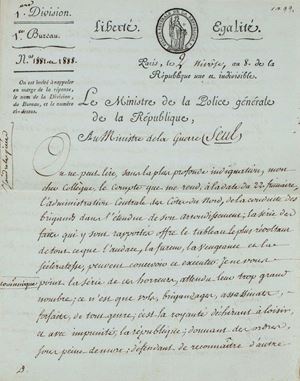 1.ere Division.
1.er Bureau.
N.os 1881 et 1888.
On est invité à rappeler
en marge de la réponse,
le nom de la Division,
du Bureau, et le numéro
ci-dessus.
Liberté. Egalité.
Paris, le 9 Nivôse, an 8. de la
République une et indivisible.
Le Ministre de la Police générale
de la République,
Au Ministre de la Guerre (Seul)
On ne peut lire, sans la plus profonde indignation, mon
cher Collègue, le Compte que me rend, à la date du 22 frimaire,
l'administration Centrale des Côtes du Nord, de la conduite des
brigands dans l'étendue de son arrondissement; la série de
faits qui y sont rapportés offre le tableau le plus révoltant
de tout ce que l'audace, la fureur, la vengeance et la
scélératesse, peuvent concevoir et exécuter. Je ne vous
point la série de ces horreurs, attendu leur trop grand
nombre; ce n'est que vols, brigandages, assassinats,
forfaits, de tout genre; c'est la royauté déchirant à loisir,
et avec impunité, la république; donnant des ordres
sous peine de mort; défendant de reconnaître d'autre